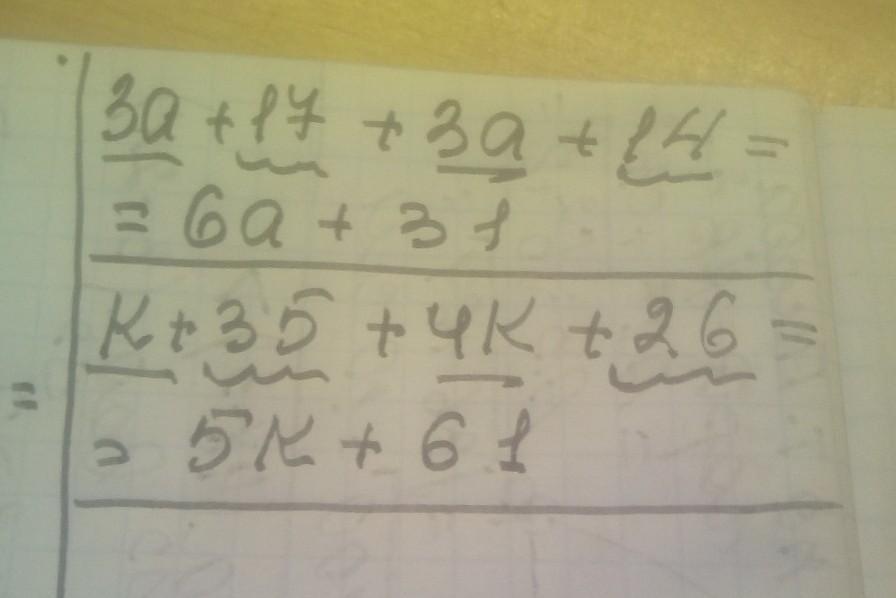 3a + 17 + 3a + 14 =
= 6a + 31
к + 35 + 4к + 26 =
= 5к + 61
=